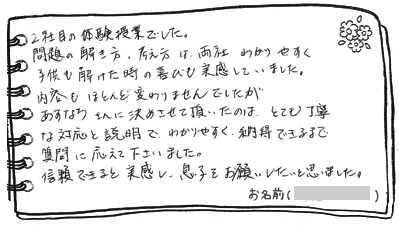 2社目の体験授業でした。
問題の解き方、考え方は、両社 わかりやすく
子供も解けた時の喜びも実感していました。
内容もほとんど変わりませんでしたが
あすなろさんに決めさせて頂いたのは、とても丁寧
な対応と説明で、わかりやすく、納得できるまで
質問に応えて下さいました。
信頼できると実感し、息子をお願いしたいと思いました。
お名前( )